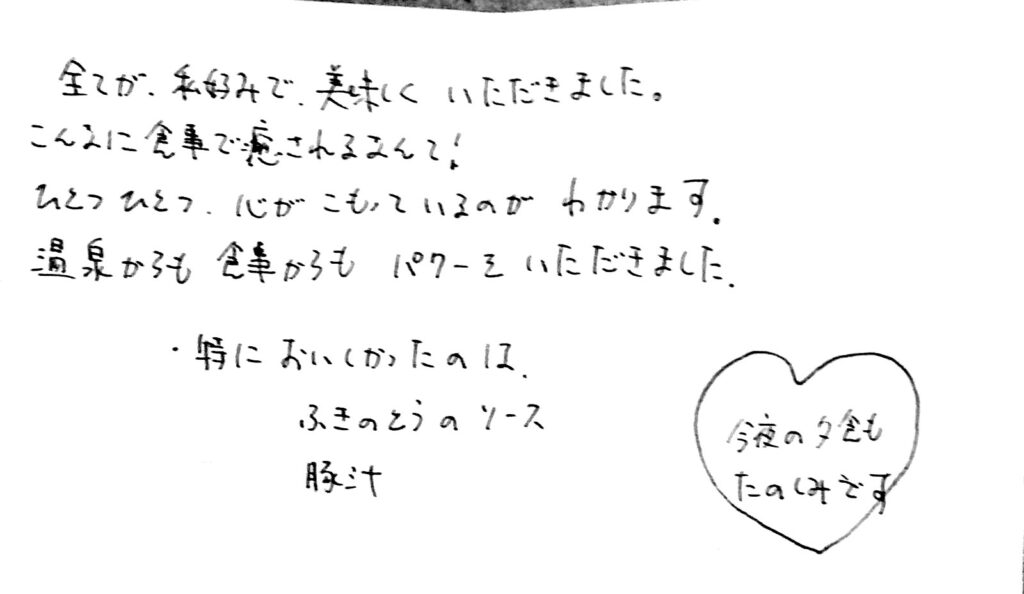 全てが、私好みで、美味しくいただきました。
こんなに食事で癒されるなんて!
ひとつひとつ、心がこもっているのがわかります。
温泉からも食事からもパワーをいただきました。
・特においしかったのは、
ふきのとうのソース
豚汁
今夜の夕食も
たのしみです